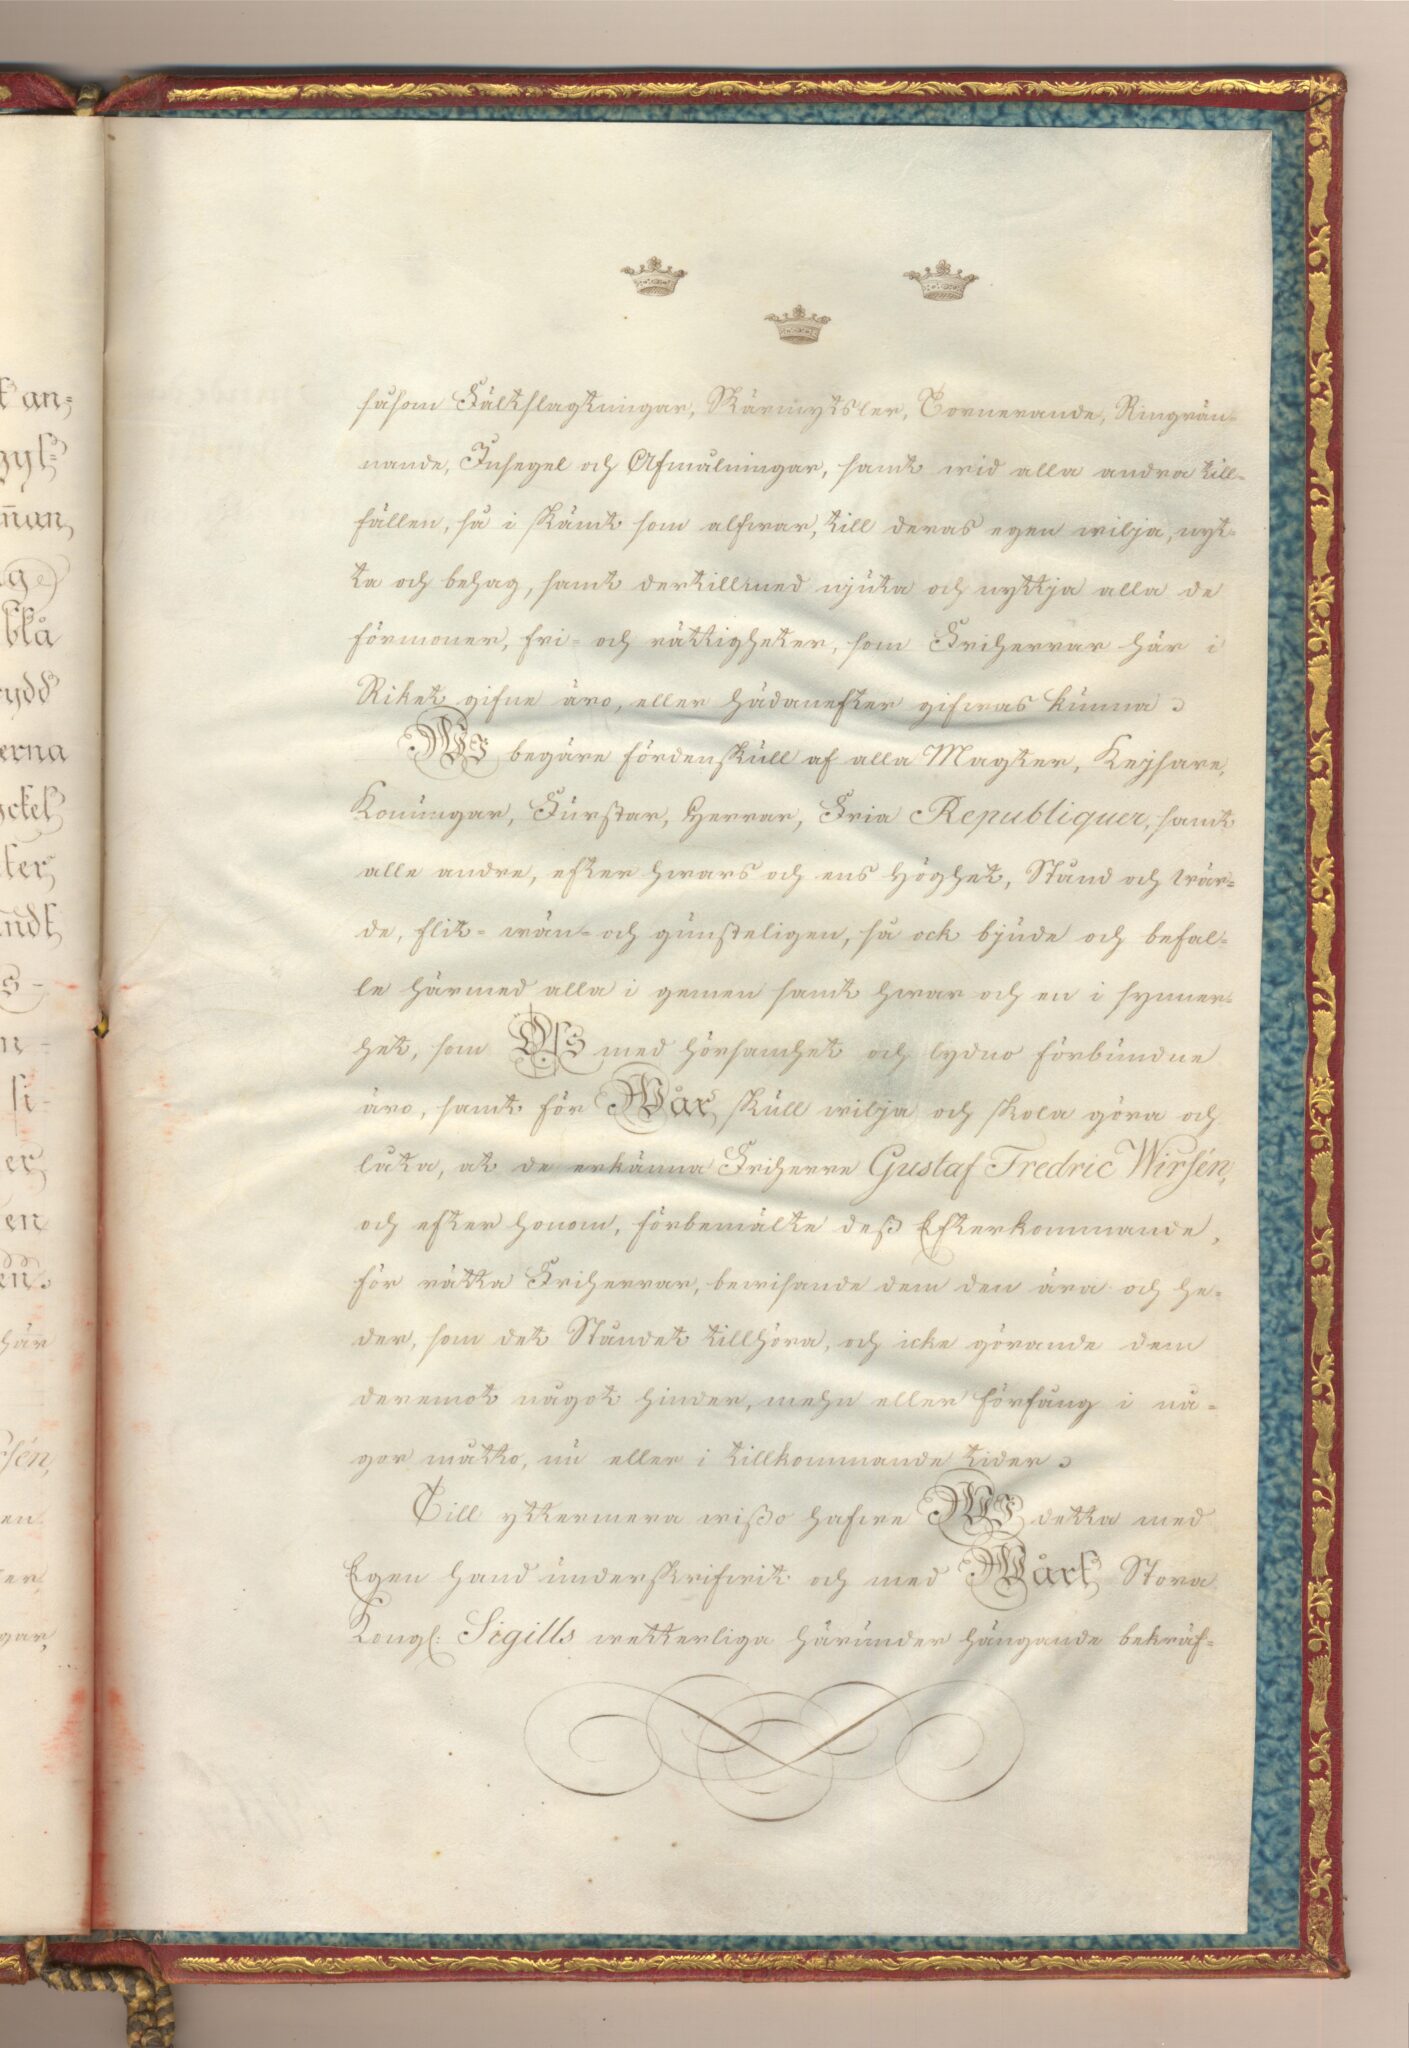 k an-
gyl-
m̃an,
g
blå
rydd
erna
ckel
ter
ndt
s -
n -
si-
er
en
en.
här
sén,
en
er,
gar,
såsom Fältslagtningar, Skärmytsler, Tornerande, Ringrän-
nande, Insegel och Afmålningar, samt wid alla andra till-
fällen, så i skämt som alfwar, till deras egen wilja, nyt-
ta och behag, samt dertillmed njuta och nyttja alla de
förmoner, fri- och rättigheter, som Friherrar här i
Riket gifne äro, eller hädanefter gifwas kunna.
Wi begäre fördenskull af alla Magter, Kejsare,
Konungar, Furstar, Herrar, Fria Republiquer, samt
alle andre, efter hwars och ens Höghet, Stånd och Wär-
de, flit- wän- och gunsteligen, så ock bjude och befal-
le härmed alla i gemen samt hwar och en i synner-
het, som Oss med hörsamhet och lydno förbundne
äro, samt för Wår skull wilja och skola göra och
låta, at de erkänna Friherre Gustaf Fredric Wirsén,
och efter honom, förbemälte deß Efterkommande,
för rätta Friherrar, bewisande dem den ära och he-
der, som det Ståndet tillhöra, och icke görande dem
deremot något hinder, mehn eller förfång i nå-
gor måtto, nu eller i tillkommande tider.
Till yttermera wißo hafwe Wi detta med
Egen hand underskrifwit och med Wårt Stora
Kongl: Sigills wetterliga härunder hängande bekräf-